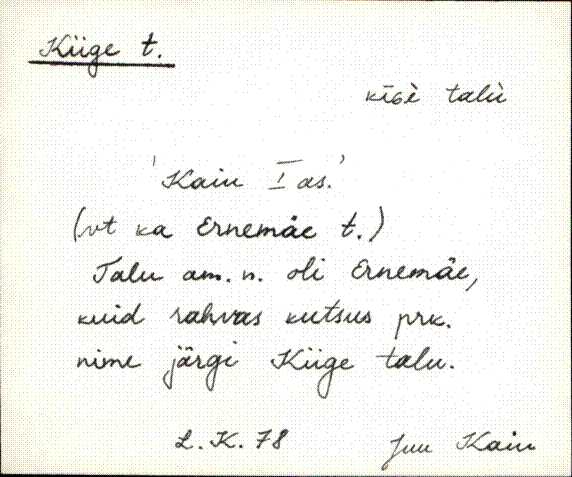 Kiige t.
kīGè talù
'Kaiu I as.'
(vt ka Ernemäe t.)
Talu am. n. oli Ernemäe,
kuid rahvas kutsus prk.
nime järgi Kiige talu.
L. K. 78 Juu Kaiu